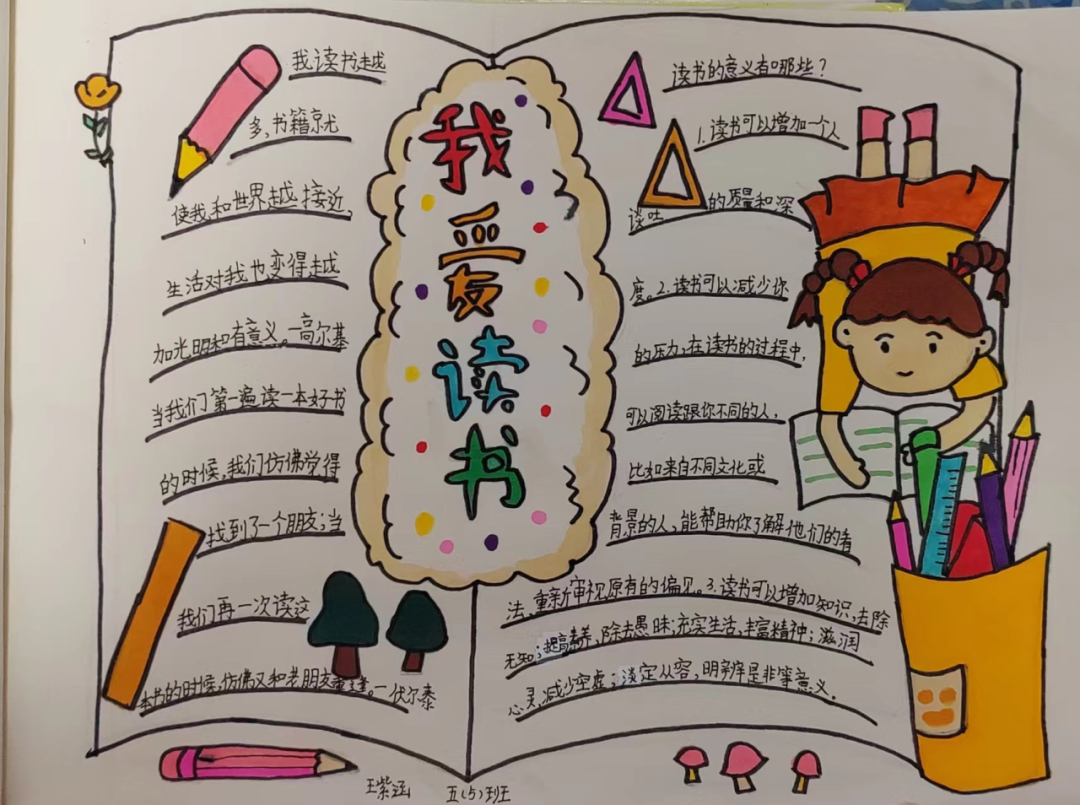 我爱读书
我读书越
多,书籍就
使我和世界越接近,
生活对我也变得越
加光明和有意义。一高尔基
当我们第一遍读一本好书
的时候,我们仿佛觉得
找到了一个朋友;当
我们再一次读这
本书的时候,仿佛又和老朋友重逢。一伏尔泰
读书的意义有哪些?
1.读书可以增加一个人
谈吐的质量和深
度。2.读书可以减少你
的压力;在读书的过程中,
可以阅读跟你不同的人,
比如来自不同文化或
背景的人,能帮助你了解他们的看
法,重新审视原有的偏见。3.读书可以增加知识,去除
无知;提高素养,除去愚昧;充实生活,丰富精神;滋润
心灵,减少空虚;淡定从容,明辨是非等意义.
王紫涵 五(5)班